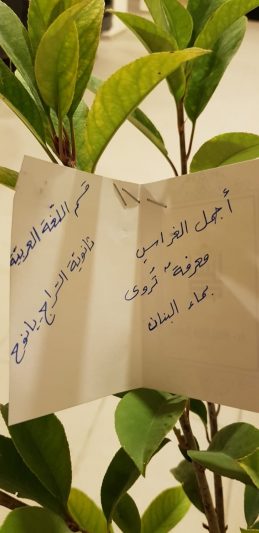 أجمل الغراسِ
معرفةٌ تُروى
بماء البنان
قسم اللّغة العربيّة
ثانويّة السّراج - يانوح